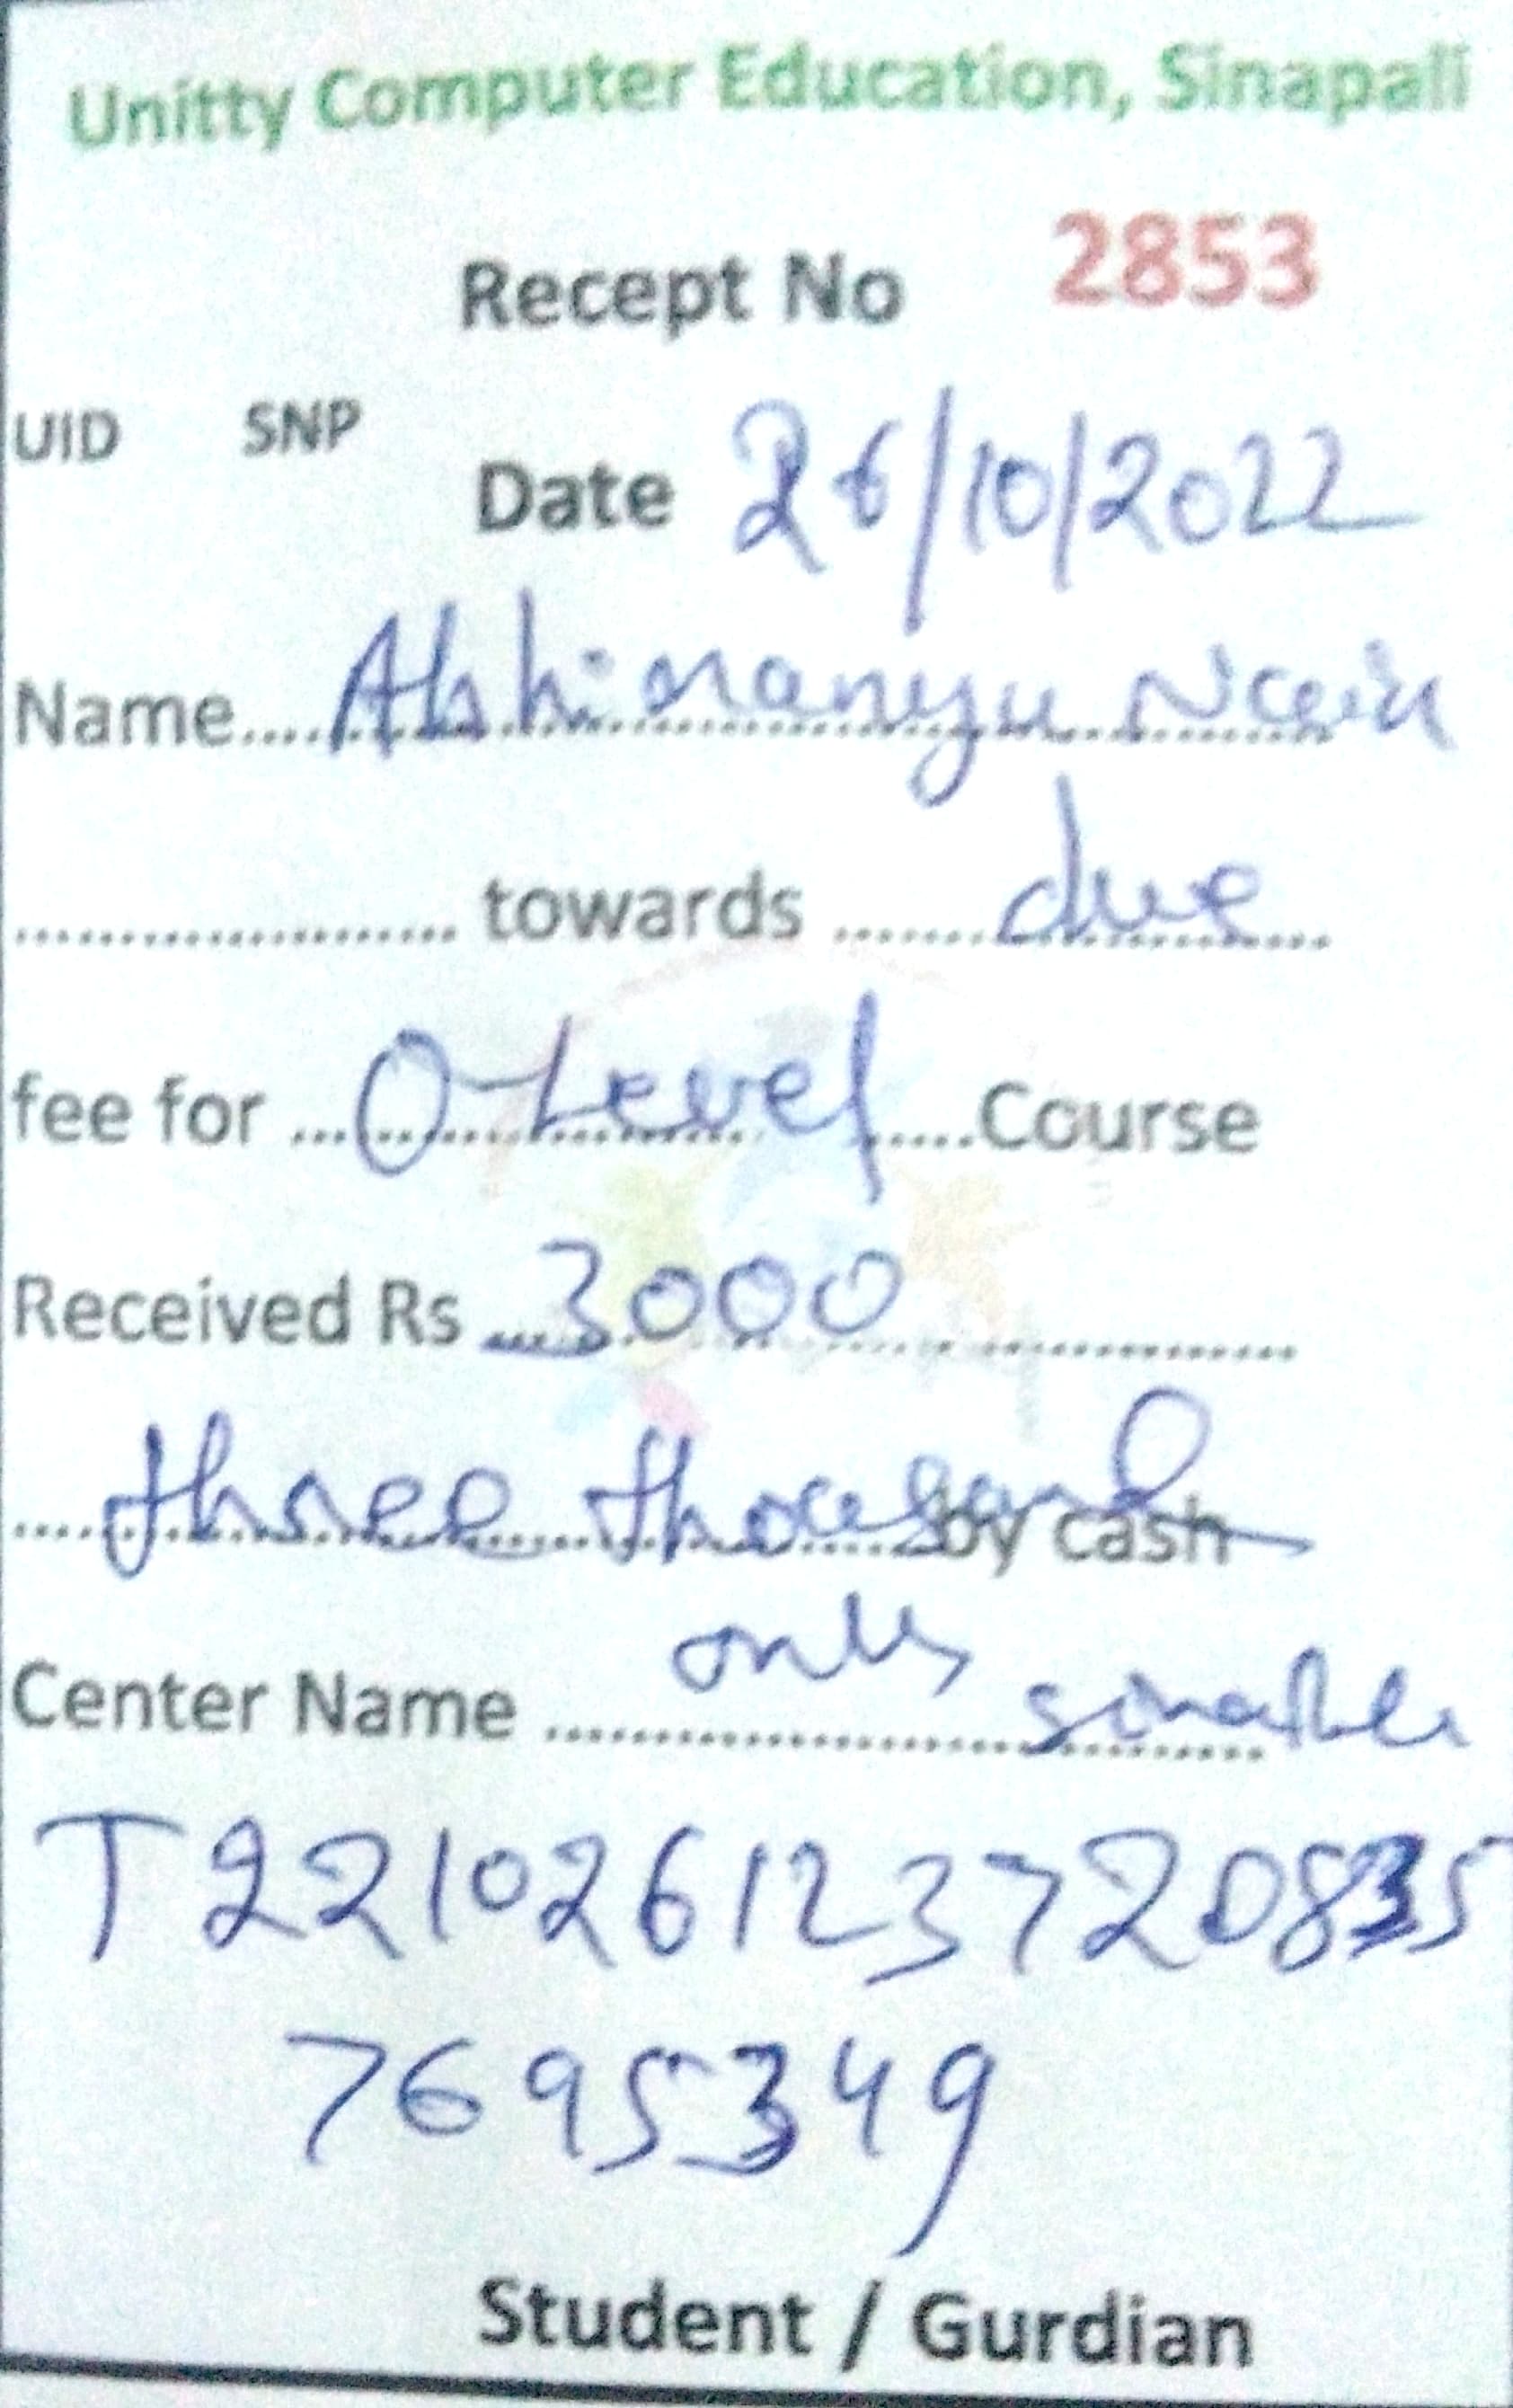 Unitty Computer Education, Sinapali
Recept No 2853
UID SNP
Date 26/10/2022
Name.... Abhimanyu
.................... towards ....... due
fee for ... O-Level .....Course
Received Rs ... 3000 ..............
... three thousand by cash
only
Center Name ................... Sinapali
T221026123720835
7695349
Student / Gurdian